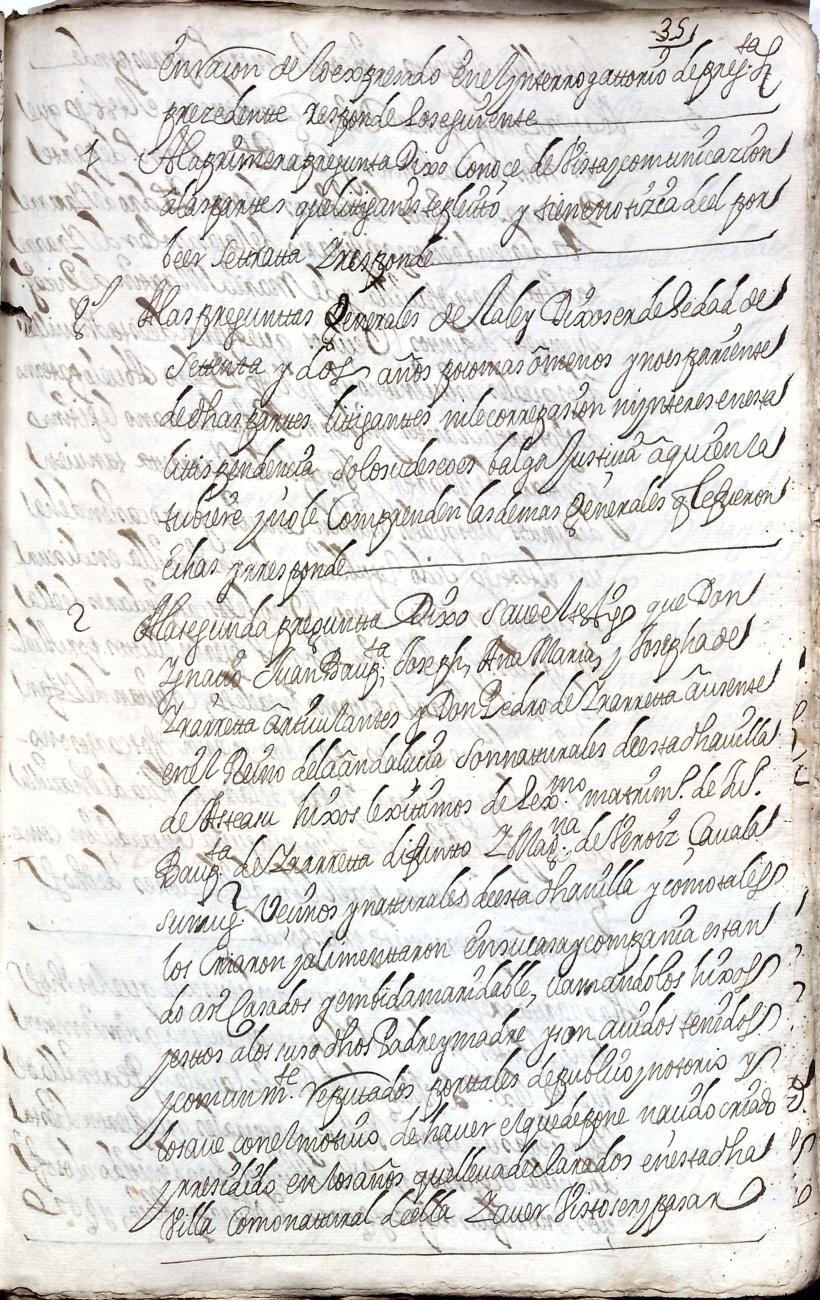 35
En racon de lo expresado en el ynterrogattorio de preg.tas
prezedente responde lo seguiente
1 A la primera pregunta Dixo Conoçe de Vista y comunicazion
a las partes que litigan este pleito, y tiene notizia de el por
beer se tratta Y responde
g.s A las preguntas Generales de la ley Dixo ser de hedad de
settenta y dos años poco mas o menos y no es pariente
de dhas partes litigantes ni le correpasion ni ynteres en esta
litispendencia solo su deseo es balga Justicia a quien la
tubiere y no le Comprenden las demas Generales q le fueron
echas y responde
2 A la segunda pregunta Dixo Save el testigo que Don
Ygnacio Juan Baup.ta, Joseph, Ana Maria, y Josepha de
Yrarretta articulantes y Don Pedro de Yrarretta ausente
en el Reino de la andalucia son naturales de esta dha villa
de Asteasu hixos lexitimos de Lex.mo matrim.o de Ju.o
Baup.ta de Yrarretta difunto Y Mag.na de Veroiz Cavala
su mug.r Vecinos y naturales de esta dha villa y como tales
los criaron y alimentaron en su casa y compania estan
do asi Casados y en bida maridable, llamandolos hixos
y estos a los suso dhos Padre y madre y son auidos tenidos
y comunm.te Reputados por tales de publico y notorio y
lo saue con el motiuo de hauer el que depone nacido criado
y rresidido en los años que lleua declarados en esta dha
Villa Como natural de ella Y auer Visto ser y pasar